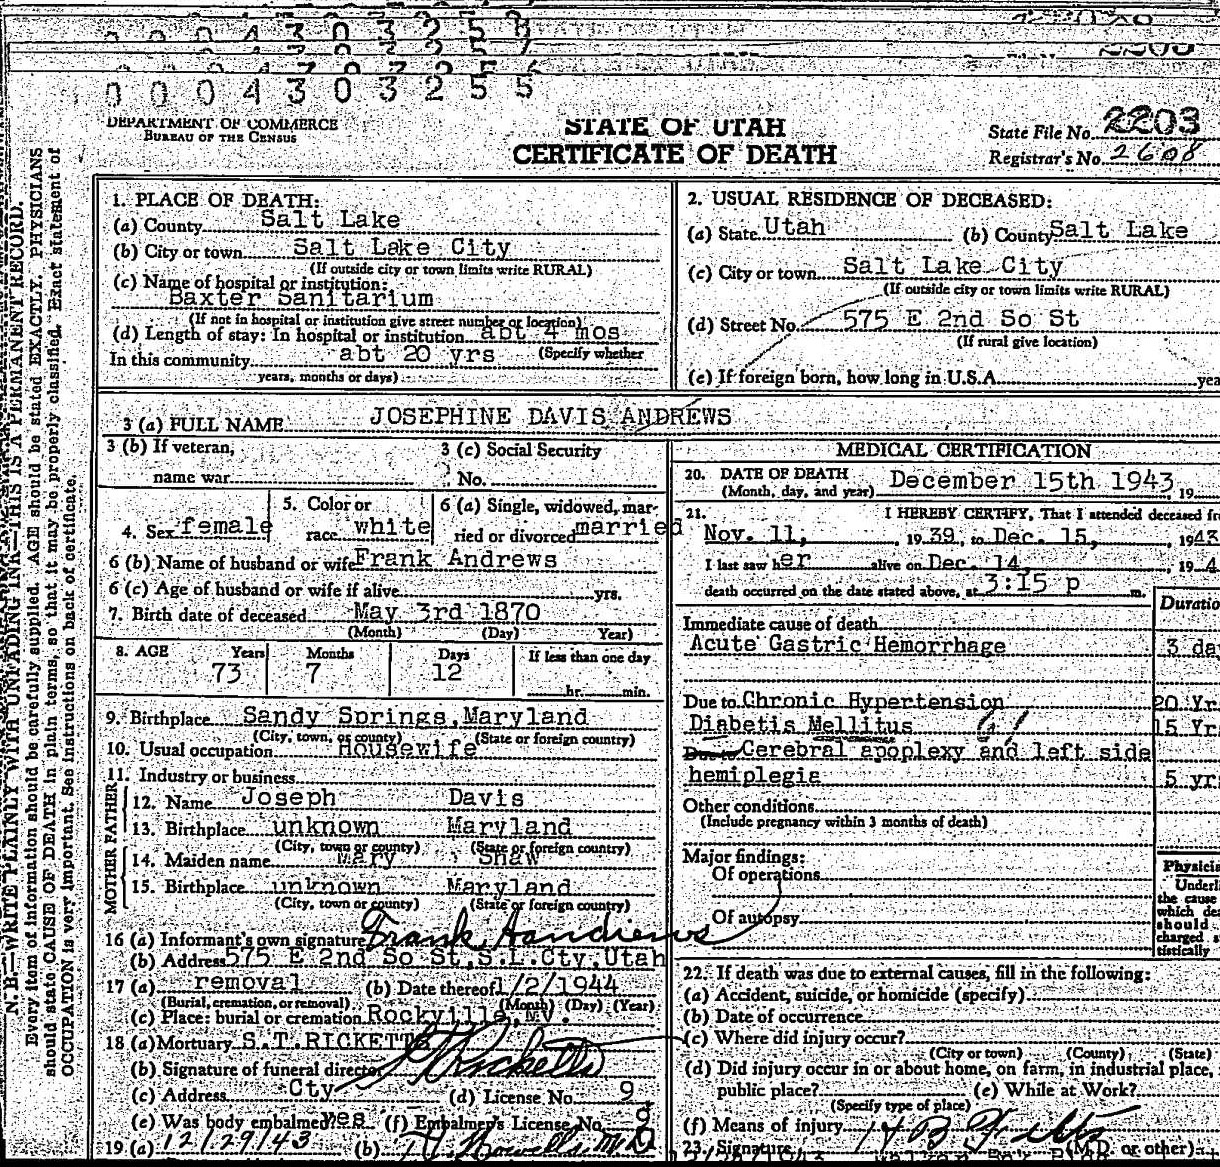 0 0 0 4 3 0 3 2 5 8
0 0 0 4 3 0 3 2 5 5
DEPARTMENT OF COMMERCE
BUREAU OF THE CENSUS
STATE OF UTAH
CERTIFICATE OF DEATH
State File No. 2203
Registrar's No. 2608
N. B.—WRITE PLAINLY WITH UNFADING INK—THIS IS A PERMANENT RECORD.
Every item of information should be carefully supplied. AGE should be stated EXACTLY. PHYSICIANS
should state CAUSE OF DEATH in plain terms, so that it may be properly classified. Exact statement of
OCCUPATION is very important. See instructions on back of certificate.
1. PLACE OF DEATH:
(a) County Salt Lake
(b) City or town Salt Lake City
(If outside city or town limits write RURAL)
(c) Name of hospital or institution:
Baxter Sanitarium
(If not in hospital or institution give street number or location)
(d) Length of stay: In hospital or institution abt 4 mos
In this community abt 20 yrs (Specify whether
years, months or days)
2. USUAL RESIDENCE OF DECEASED:
(a) State Utah (b) County Salt Lake
(c) City or town Salt Lake City
(If outside city or town limits write RURAL)
(d) Street No. 575 E 2nd So St
(If rural give location)
(e) If foreign born, how long in U.S.A. yea
3 (a) FULL NAME JOSEPHINE DAVIS ANDREWS
3 (b) If veteran, 3 (c) Social Security
name war No.
4. Sex female 5. Color or race white 6 (a) Single, widowed, married or divorced married
6 (b) Name of husband or wife Frank Andrews
6 (c) Age of husband or wife if alive yrs.
7. Birth date of deceased May 3rd 1870
(Month) (Day) Year)
8. AGE Years Months Days If less than one day
73 7 12 hr. min.
9. Birthplace Sandy Springs, Maryland
(City, town, or county) (State or foreign country)
10. Usual occupation Housewife
11. Industry or business
FATHER
12. Name Joseph Davis
13. Birthplace unknown Maryland
(City, town or county) (State or foreign country)
MOTHER
14. Maiden name Mary Shaw
15. Birthplace unknown Maryland
(City, town or county) (State or foreign country)
16 (a) Informant's own signature Frank Aandrews
(b) Address 575 E 2nd So St, S.L.Cty, Utah
17 (a) removal (b) Date thereof 1/2/1944
(Burial, cremation, or removal) (Month) (Day) (Year)
(c) Place: burial or cremation Rockville, MV.
18 (a) Mortuary S.T.RICKETTS
(b) Signature of funeral director Ricketts
(c) Address Cty (d) License No. 9
(e) Was body embalmed? yes (f) Embalmer's License No. 9
19 (a) 12/29/43 (b) Howells, M.D
MEDICAL CERTIFICATION
20. DATE OF DEATH
(Month, day, and year) December 15th 1943, 19
21. I HEREBY CERTIFY, That I attended deceased fr
Nov. 11, , 19 39, to Dec. 15, , 1943
I last saw her alive on Dec. 14, , 19 4
death occurred on the date stated above, at 3:15 p m.
Duratio
Immediate cause of death
Acute Gastric Hemorrhage 3 da
Due to Chronic Hypertension 20 Yr
Diabetis Mellitus 61 15 Yr
Due to Cerebral apoplexy and left side
hemiplegia 5 yr
Other conditions
(Include pregnancy within 3 months of death)
Major findings:
Of operations
Of autopsy
Physicia
Underli
the cause
which dea
should
charged s
tistically
22. If death was due to external causes, fill in the following:
(a) Accident, suicide, or homicide (specify)
(b) Date of occurrence
(c) Where did injury occur?
(City or town) (County) (State)
(d) Did injury occur in or about home, on farm, in industrial place,
public place? (e) While at Work?
(Specify type of place)
(f) Means of injury
23. Signature (M.D. or other)